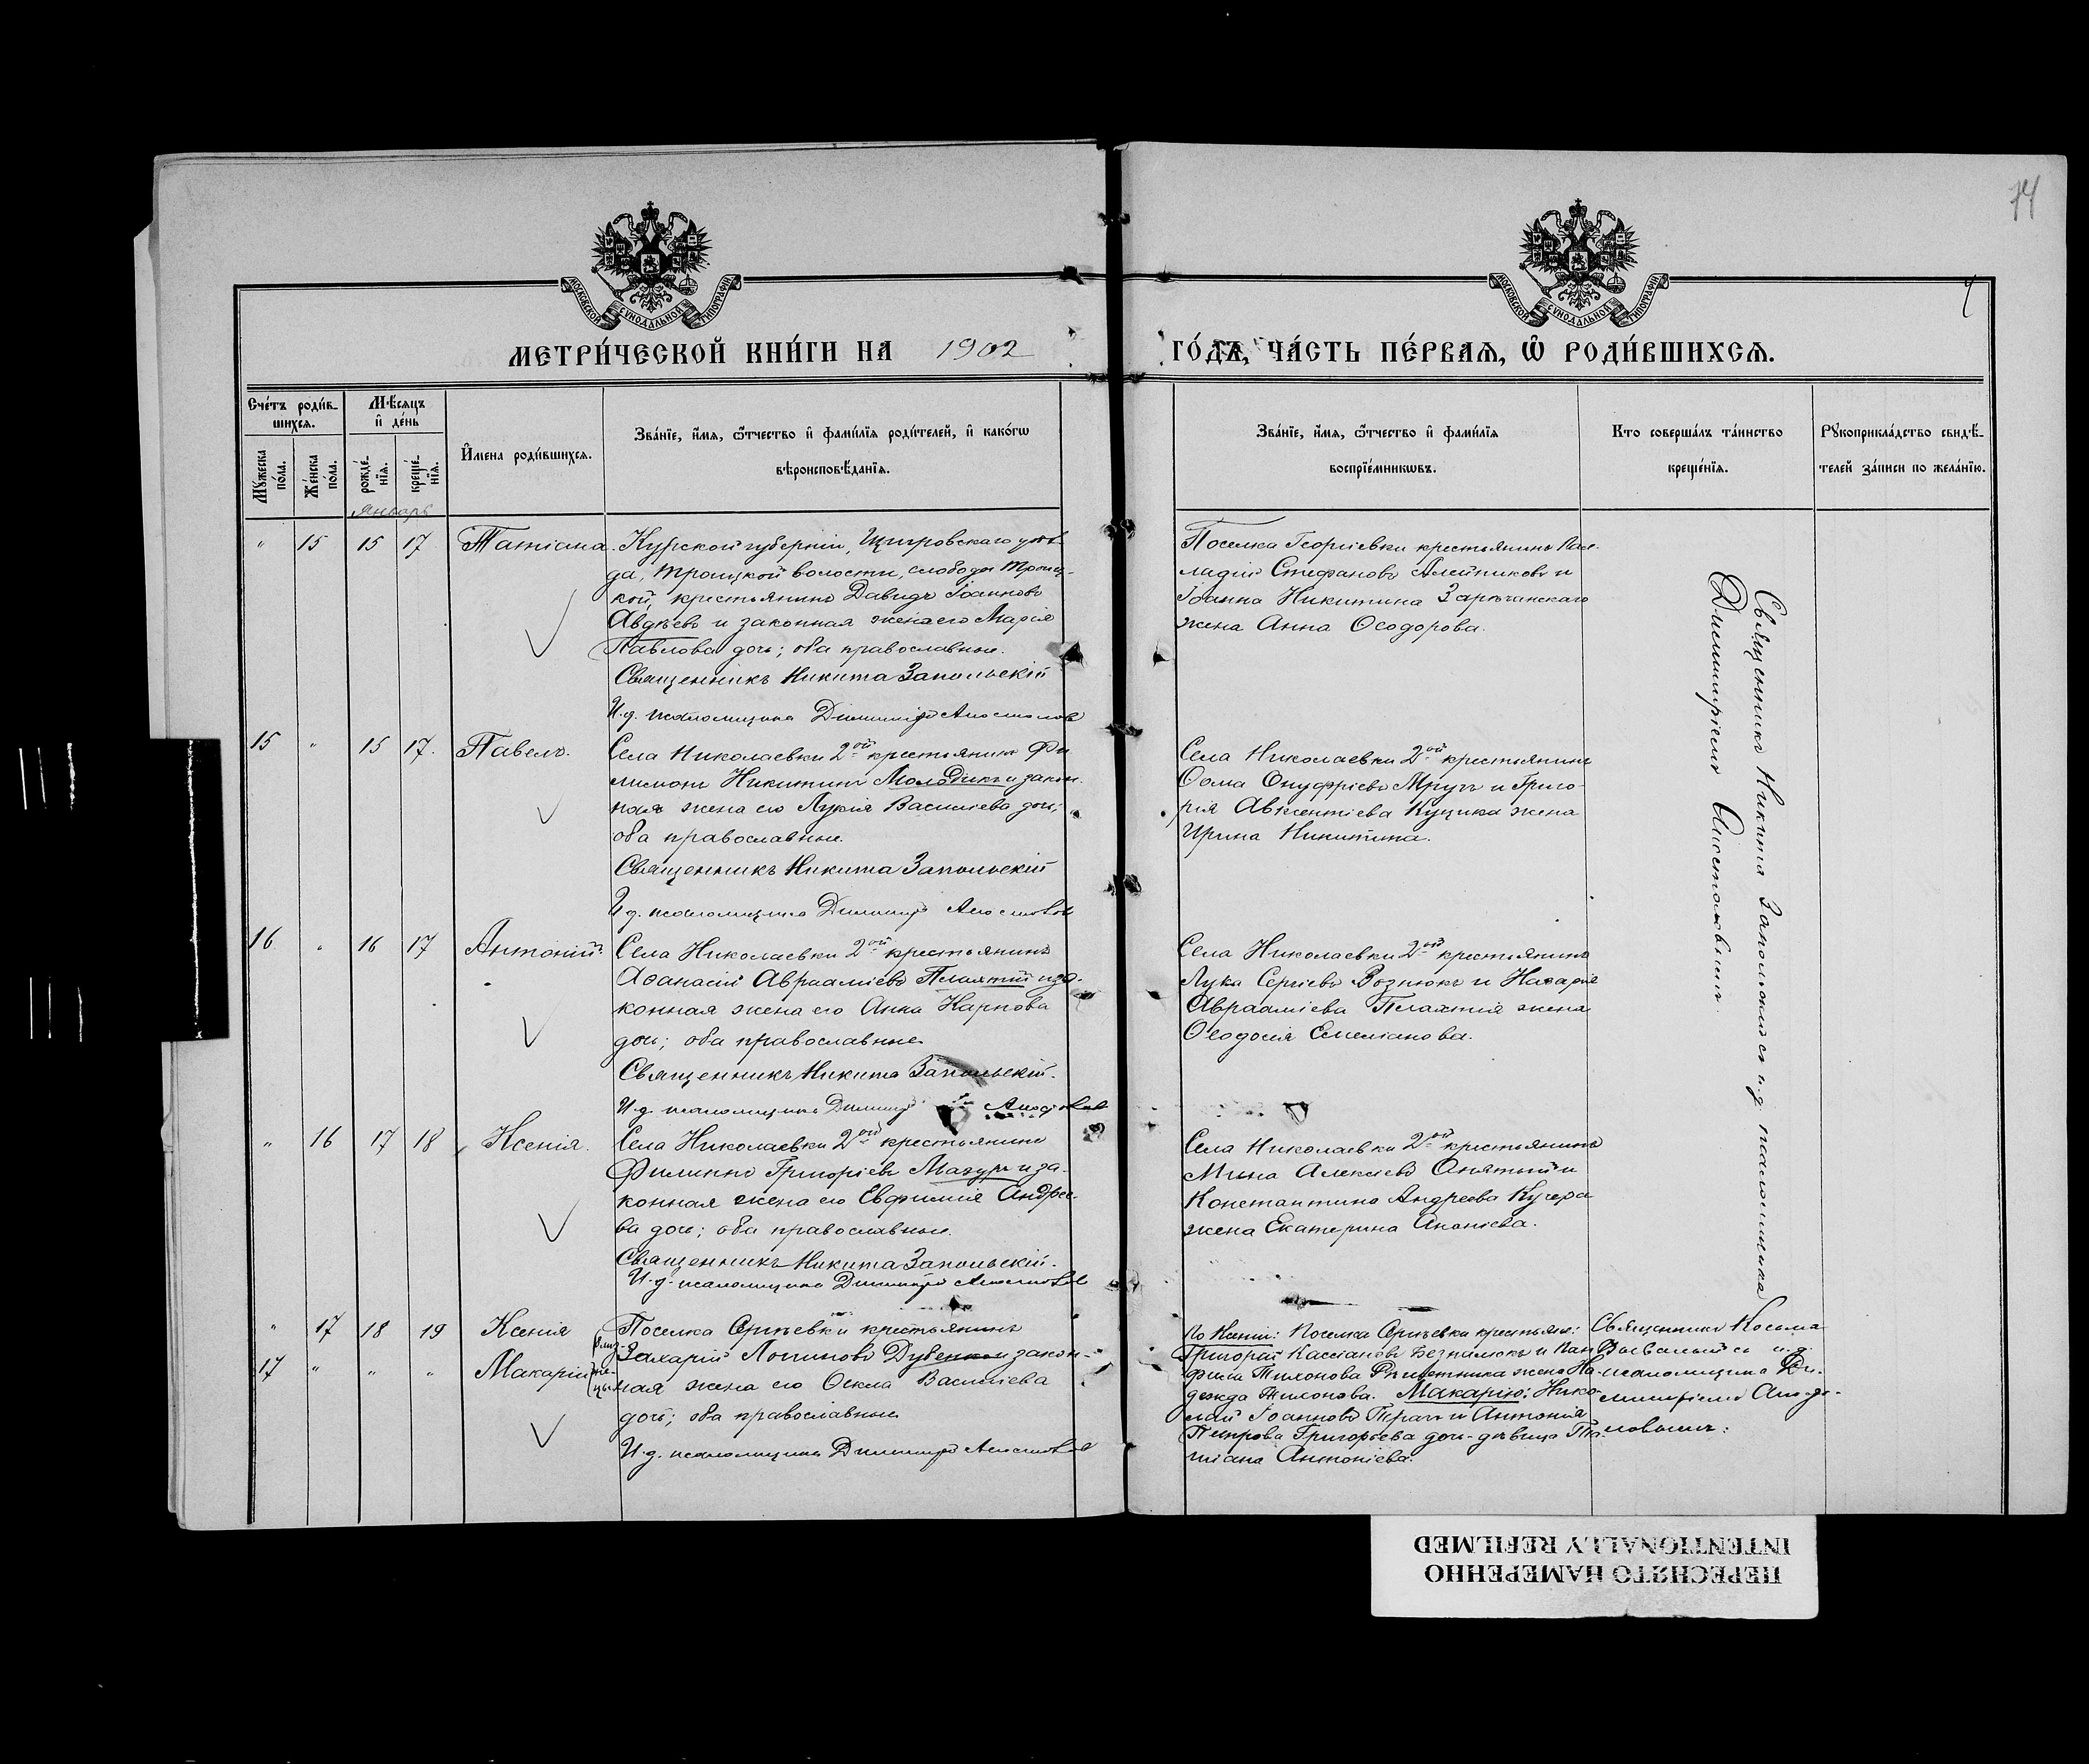 14
МОСКОВСКОЙ СѴНОДАЛЬНОЙ ТИПОГРАФІИ
МОСКОВСКОЙ СѴНОДАЛЬНОЙ ТИПОГРАФІИ
МЕТРИ́ЧЕСКОЙ КНИ́ГИ НА 1902 ГО́ДЪ, ЧА́СТЬ ПЕ́РВАѦ, Ѽ РОДИ́ВШИХСѦ.
Сче́тъ роди́в-
шихсѧ.
Мꙋ́жеска по́ла.
Же́нска по́ла.
Мѣ́сѧцъ
и҆ де́нь
рожде́-
нїѧ.
креще́-
нїѧ.
Январь
И҆мена роди́вшихсѧ.
Зва́нїе, и҆́мѧ, ѻ҆́тчество и҆ фами́лїѧ роди́телей, и҆ како́гѡ
вѣроисповѣ́данїѧ.
Зва́нїе, и҆́мѧ, ѻ҆́тчество и҆ фами́лїѧ
воспрїе́мникѡвъ.
Кто соверша́лъ та́инство
креще́нїѧ.
Рꙋкоприкла́дство свидѣ́-
телей за́писи по жела́нїю.
" 15 15 17 Татіана.
Курской губерніи, Щигровскаго уѣз-
да, Троицкой волости, слободы Троиц-
кой, крестьянинъ Давидъ Іоанновъ
Авдѣевъ и законная жена его Марія
Павлова дочь; оба православные.
Священникъ Никита Запольскій
И.д. псаломщика Димитрій Апостоловъ
Поселка Георгіевки крестьянинъ Пал-
ладій Стефановъ Алейниковъ и
Іоанна Никитина Зарѣчанскаго
жена Анна Ѳеодорова.
Священникъ Никита Запольскій съ и.д. псаломщика
Димитріемъ Апостоловымъ.
15 " 15 17. Павелъ.
Села Николаевки 2ой крестьянинъ Фи
лимонъ Никитинъ Молодикъ и закон-
ная жена его Лукія Василіева дочь;
оба православные.
Священникъ Никита Запольскій
И.д. псаломщика Димитрій Апостоловъ
Села Николаевки 2ой крестьянинъ
Ѳома Онуфріевъ Мручъ и Григо-
рія Авксентіева Куцика жена
Ирина Никитина.
16 " 16 17 Антоній.
Села Николаевки 2ой крестьянинъ
Аѳанасій Авраміевъ Плахтій и за-
конная жена его Анна Карпова
дочь; оба православные
Священникъ Никита Запольскій.
И.д. псаломщика Димитрій Апостоловъ
Села Николаевки 2ой крестьянинъ
Лука Сергіевъ Вознюкъ и Назарія
Авраміева Плахтія жена
Ѳеодосія Емеліанова.
" 16 17 18 Ксенія.
Села Николаевки 2ой крестьянинъ
Филиппъ Григоріевъ Мазуръ и за-
конная жена его Евфимія Андрее-
ва дочь; оба православные.
Священникъ Никита Запольскій.
И.д. псаломщика Димитрій Апостоловъ
Села Николаевки 2ой крестьянинъ
Мина Алексіевъ Опятый и
Константина Андреева Кучера
жена Екатерина Ананіева.
" 17 18 19 Ксенія
17 " " " Макарій
близ-
не-
цы
Поселка Сергѣевки крестьянинъ
Захарій Логиновъ Дубенко и закон-
ная жена его Ѳекла Василіева
дочь; оба православные
И.д. псаломщика Димитрій Апостоловъ
По Ксеніи: Поселка Сергѣевки крестьяне:
Григорій Кассіановъ Безпалюкъ и
Тихонова жена На-
дежда Тихонова. Макарію: Нико-
лай Іоанновъ и Антонія
Петрова Григорьева дочь-дѣвица Та-
тіана Антоніева.
Священникъ Косьма
съ и.д.
псаломщика Ди-
митріемъ Апосто-
ловымъ.
ПЕРЕСНЯТО НАМЕРЕННО
INTENTIONALLY REFILMED